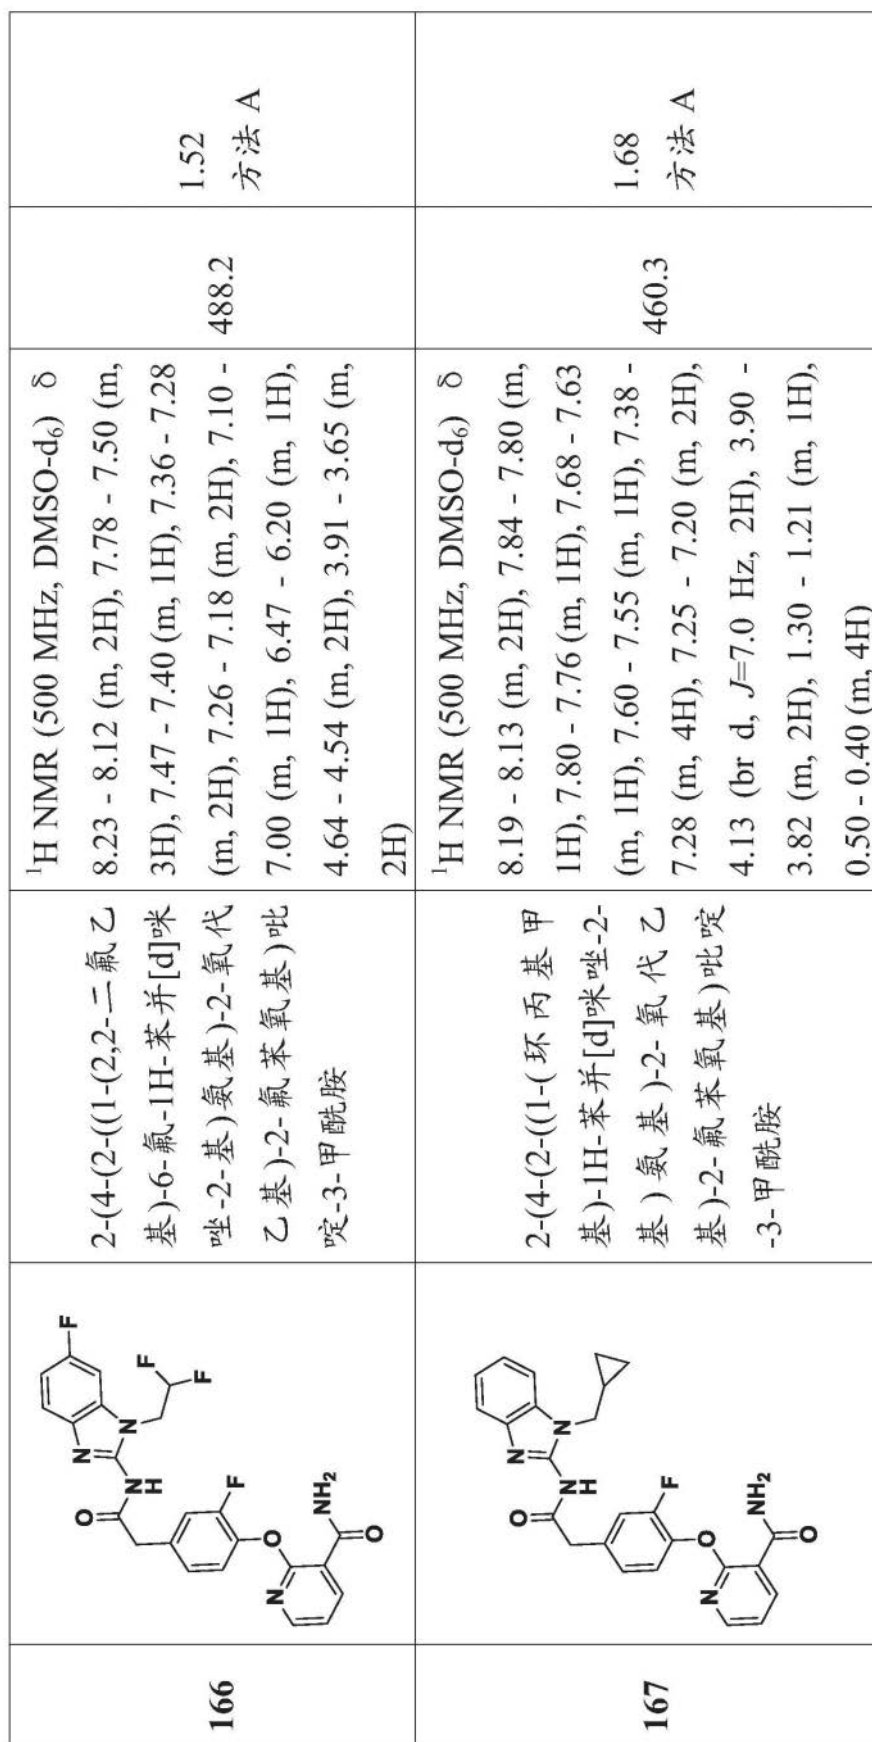 166
2-(4-(2-((1-(2,2-二氟乙
基)-6-氟-1H-苯并[d]咪
唑-2-基)氨基)-2-氧代
乙基)-2-氟苯氧基)吡
啶-3-甲酰胺
¹H NMR (500 MHz, DMSO-d₆) δ
8.23 - 8.12 (m, 2H), 7.78 - 7.50 (m,
3H), 7.47 - 7.40 (m, 1H), 7.36 - 7.28
(m, 2H), 7.26 - 7.18 (m, 2H), 7.10 -
7.00 (m, 1H), 6.47 - 6.20 (m, 1H),
4.64 - 4.54 (m, 2H), 3.91 - 3.65 (m,
2H)
488.2
1.52
方法 A
167
2-(4-(2-((1-(环丙基甲
基)-1H-苯并[d]咪唑-2-
基)氨基)-2-氧代乙
基)-2-氟苯氧基)吡啶
-3-甲酰胺
¹H NMR (500 MHz, DMSO-d₆) δ
8.19 - 8.13 (m, 2H), 7.84 - 7.80 (m,
1H), 7.80 - 7.76 (m, 1H), 7.68 - 7.63
(m, 1H), 7.60 - 7.55 (m, 1H), 7.38 -
7.28 (m, 4H), 7.25 - 7.20 (m, 2H),
4.13 (br d, J=7.0 Hz, 2H), 3.90 -
3.82 (m, 2H), 1.30 - 1.21 (m, 1H),
0.50 - 0.40 (m, 4H)
460.3
1.68
方法 A
F
F
F
N
N
O
N
H
F
O
N
NH₂
O
N
N
O
N
H
F
O
N
NH₂
O